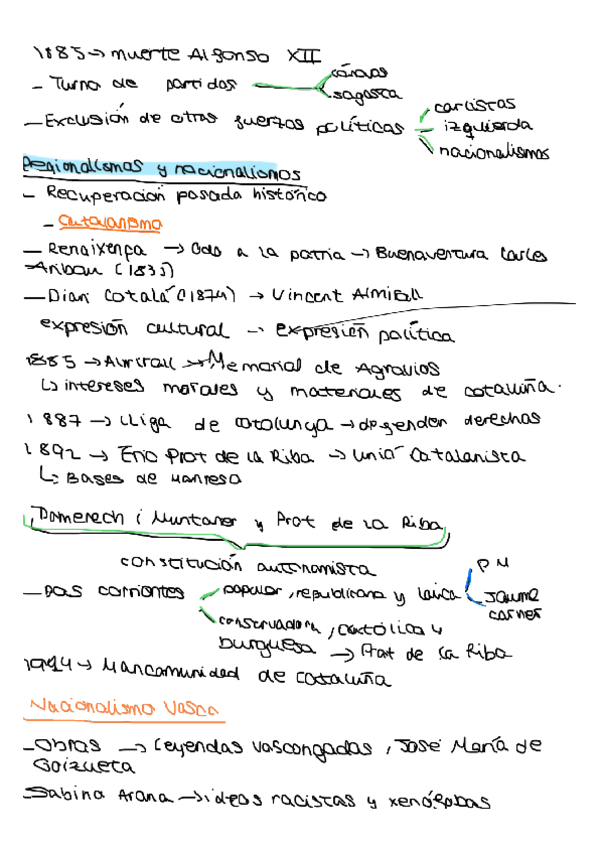 1885 → muerte Alfonso XII
- Turno de partidos cánovas
sagasta
- Exclusión de otras fuerzas políticas carlistas
izquierda
nacionalismos
Regionalismos y nacionalismos
- Recuperación pasada histórico
- Catalanismo
- Renaixença → Oda a la patria → Buenaventura Carles
Aribau (1833)
- Diari Catalá (1879) → Vincent Almirall
expresión cultural → expresión política
1885 → Almirall → Memorial de Agravios
↳ intereses morales y materiales de cataluña.
1887 → Lliga de catalunya → defender derechos
1892 → Eric Prat de la Riba → Unió Catalanista
↳ Bases de Manresa
Domenech i Muntaner y Prat de la Riba
constitución autonomista
- Dos corrientes popular, republicana y laica PM
Jaume
carner
conservadora, católica y
burguesa → Prat de la Riba
1914 → Mancomunidad de cataluña
Nacionalismo Vasco
- Obras → Leyendas vascongadas, José María de
Goizueta
- Sabino Arana → ideas racistas y xenófobas